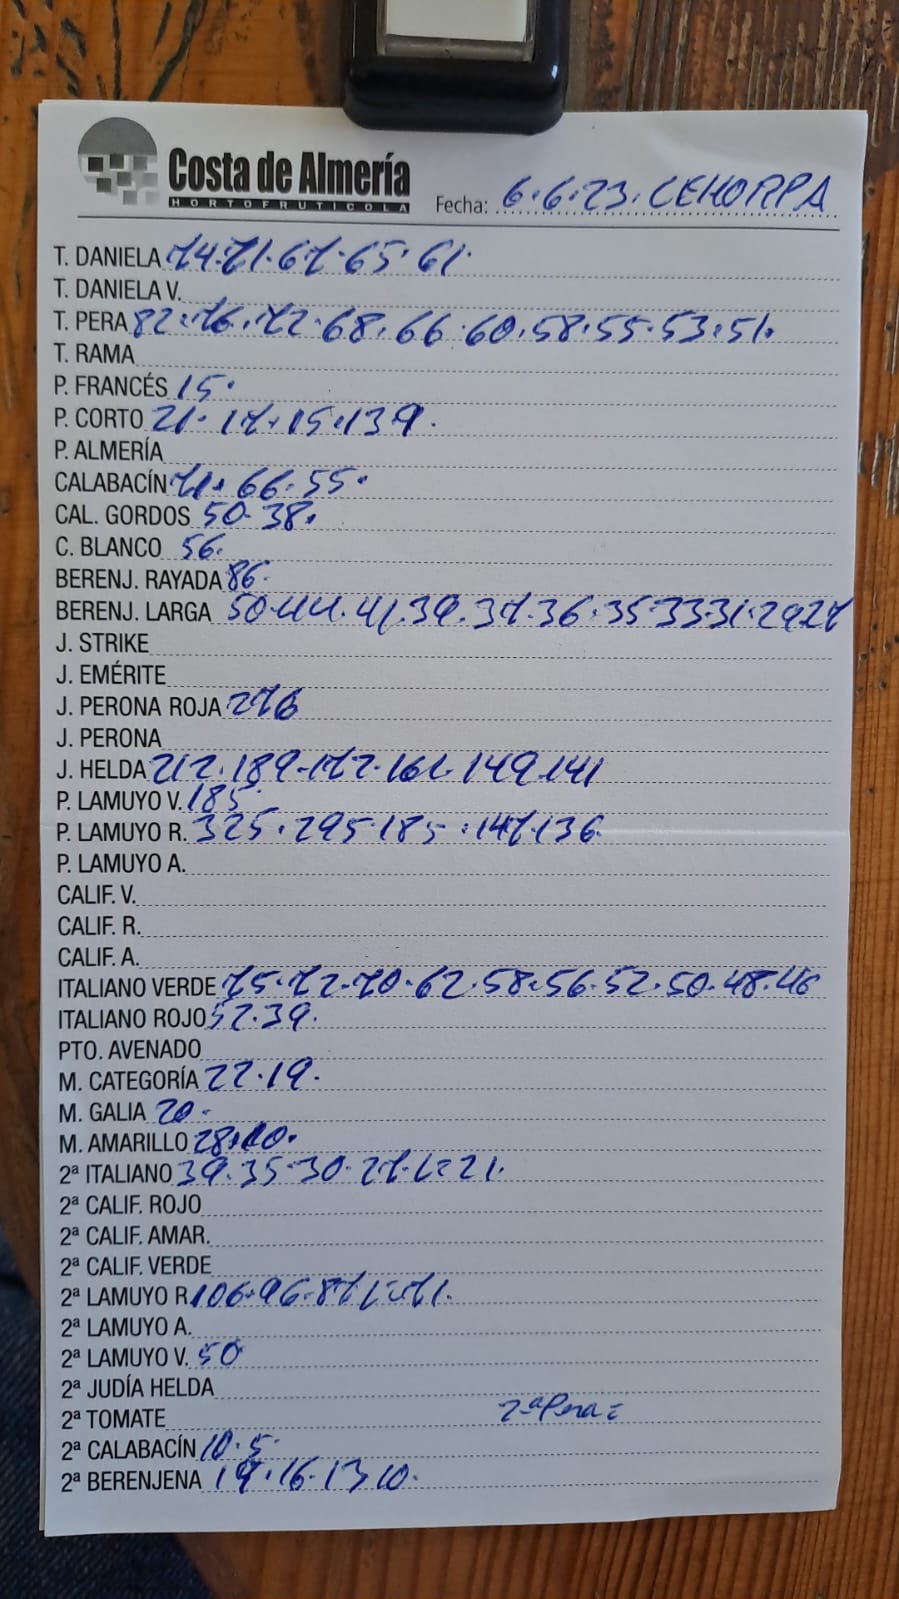 Costa de Almería
HORTOFRUTICOLA
Fecha: 6.6.23. CEHORPA
T. DANIELA 74.71.67.65.61.
T. DANIELA V.
T. PERA 82.76.72.68.66.60.58.55.53.51.
T. RAMA
P. FRANCÉS 15.
P. CORTO 21.17.15.139.
P. ALMERÍA
CALABACÍN 71.66.55.
CAL. GORDOS 50.38.
C. BLANCO 56.
BERENJ. RAYADA 86.
BERENJ. LARGA 50.44.41.39.37.36.35.33.31.29.27
J. STRIKE
J. EMÉRITE
J. PERONA ROJA 276
J. PERONA
J. HELDA 212.189.172.161.149.141
P. LAMUYO V. 185
P. LAMUYO R. 325.295.185.147.136
P. LAMUYO A.
CALIF. V.
CALIF. R.
CALIF. A.
ITALIANO VERDE 75.72.70.62.58.56.52.50.48.46
ITALIANO ROJO 52.39.
PTO. AVENADO
M. CATEGORÍA 22.19.
M. GALIA 20.
M. AMARILLO 28.
2ª ITALIANO 39.35.30.27. 21.
2ª CALIF. ROJO
2ª CALIF. AMAR.
2ª CALIF. VERDE
2ª LAMUYO R 106.96.87 71.
2ª LAMUYO A.
2ª LAMUYO V. 50
2ª JUDÍA HELDA
2ª TOMATE 2ª Pera =
2ª CALABACÍN 10.5.
2ª BERENJENA 19.16.13 10.